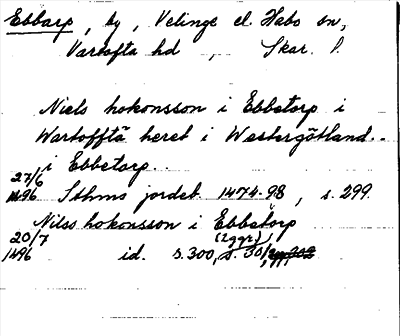 Ebbarp, by, Velinge el. Habo sn,
Vartofta hd, Skar. l.
Niels hokonsson i Ebbetorp i
Wartofftä heret i Westergötland..
i Ebbetorp..
27/6
1496 Sthms jordeb. 1474-98, s. 299.
Nilss hokonsson i Ebbetorp
20/7 (2 ggr)
1496 id. s. 300, s. 301,